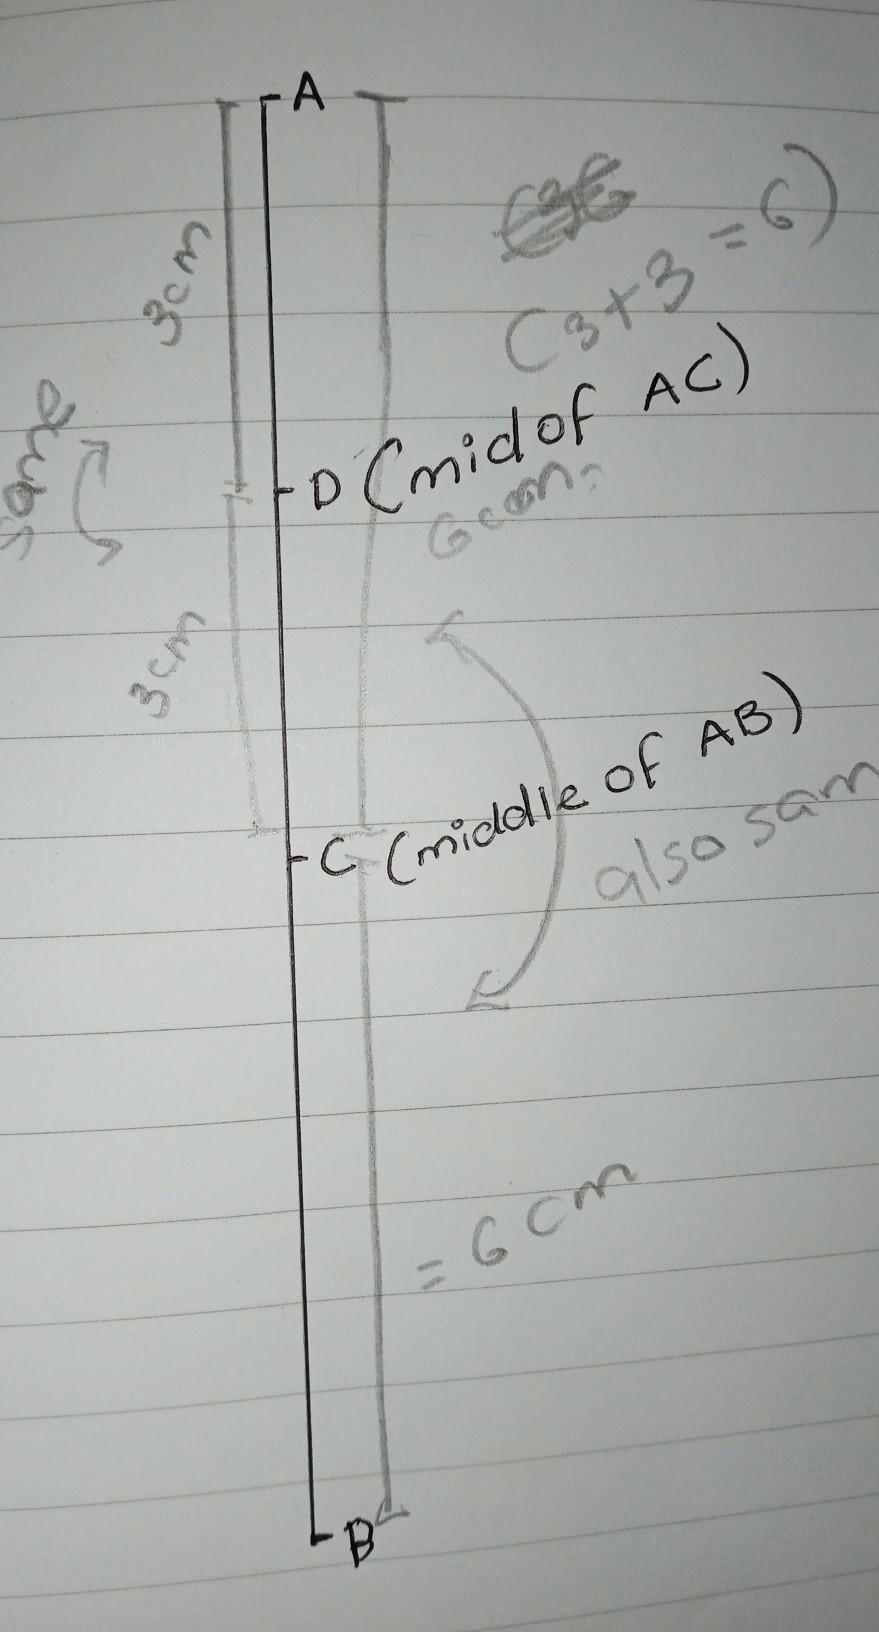 A
(3+3=6)
3cm
D (mid of AC)
same
6cm
3cm
C (middle of AB)
also sam
= 6cm
B